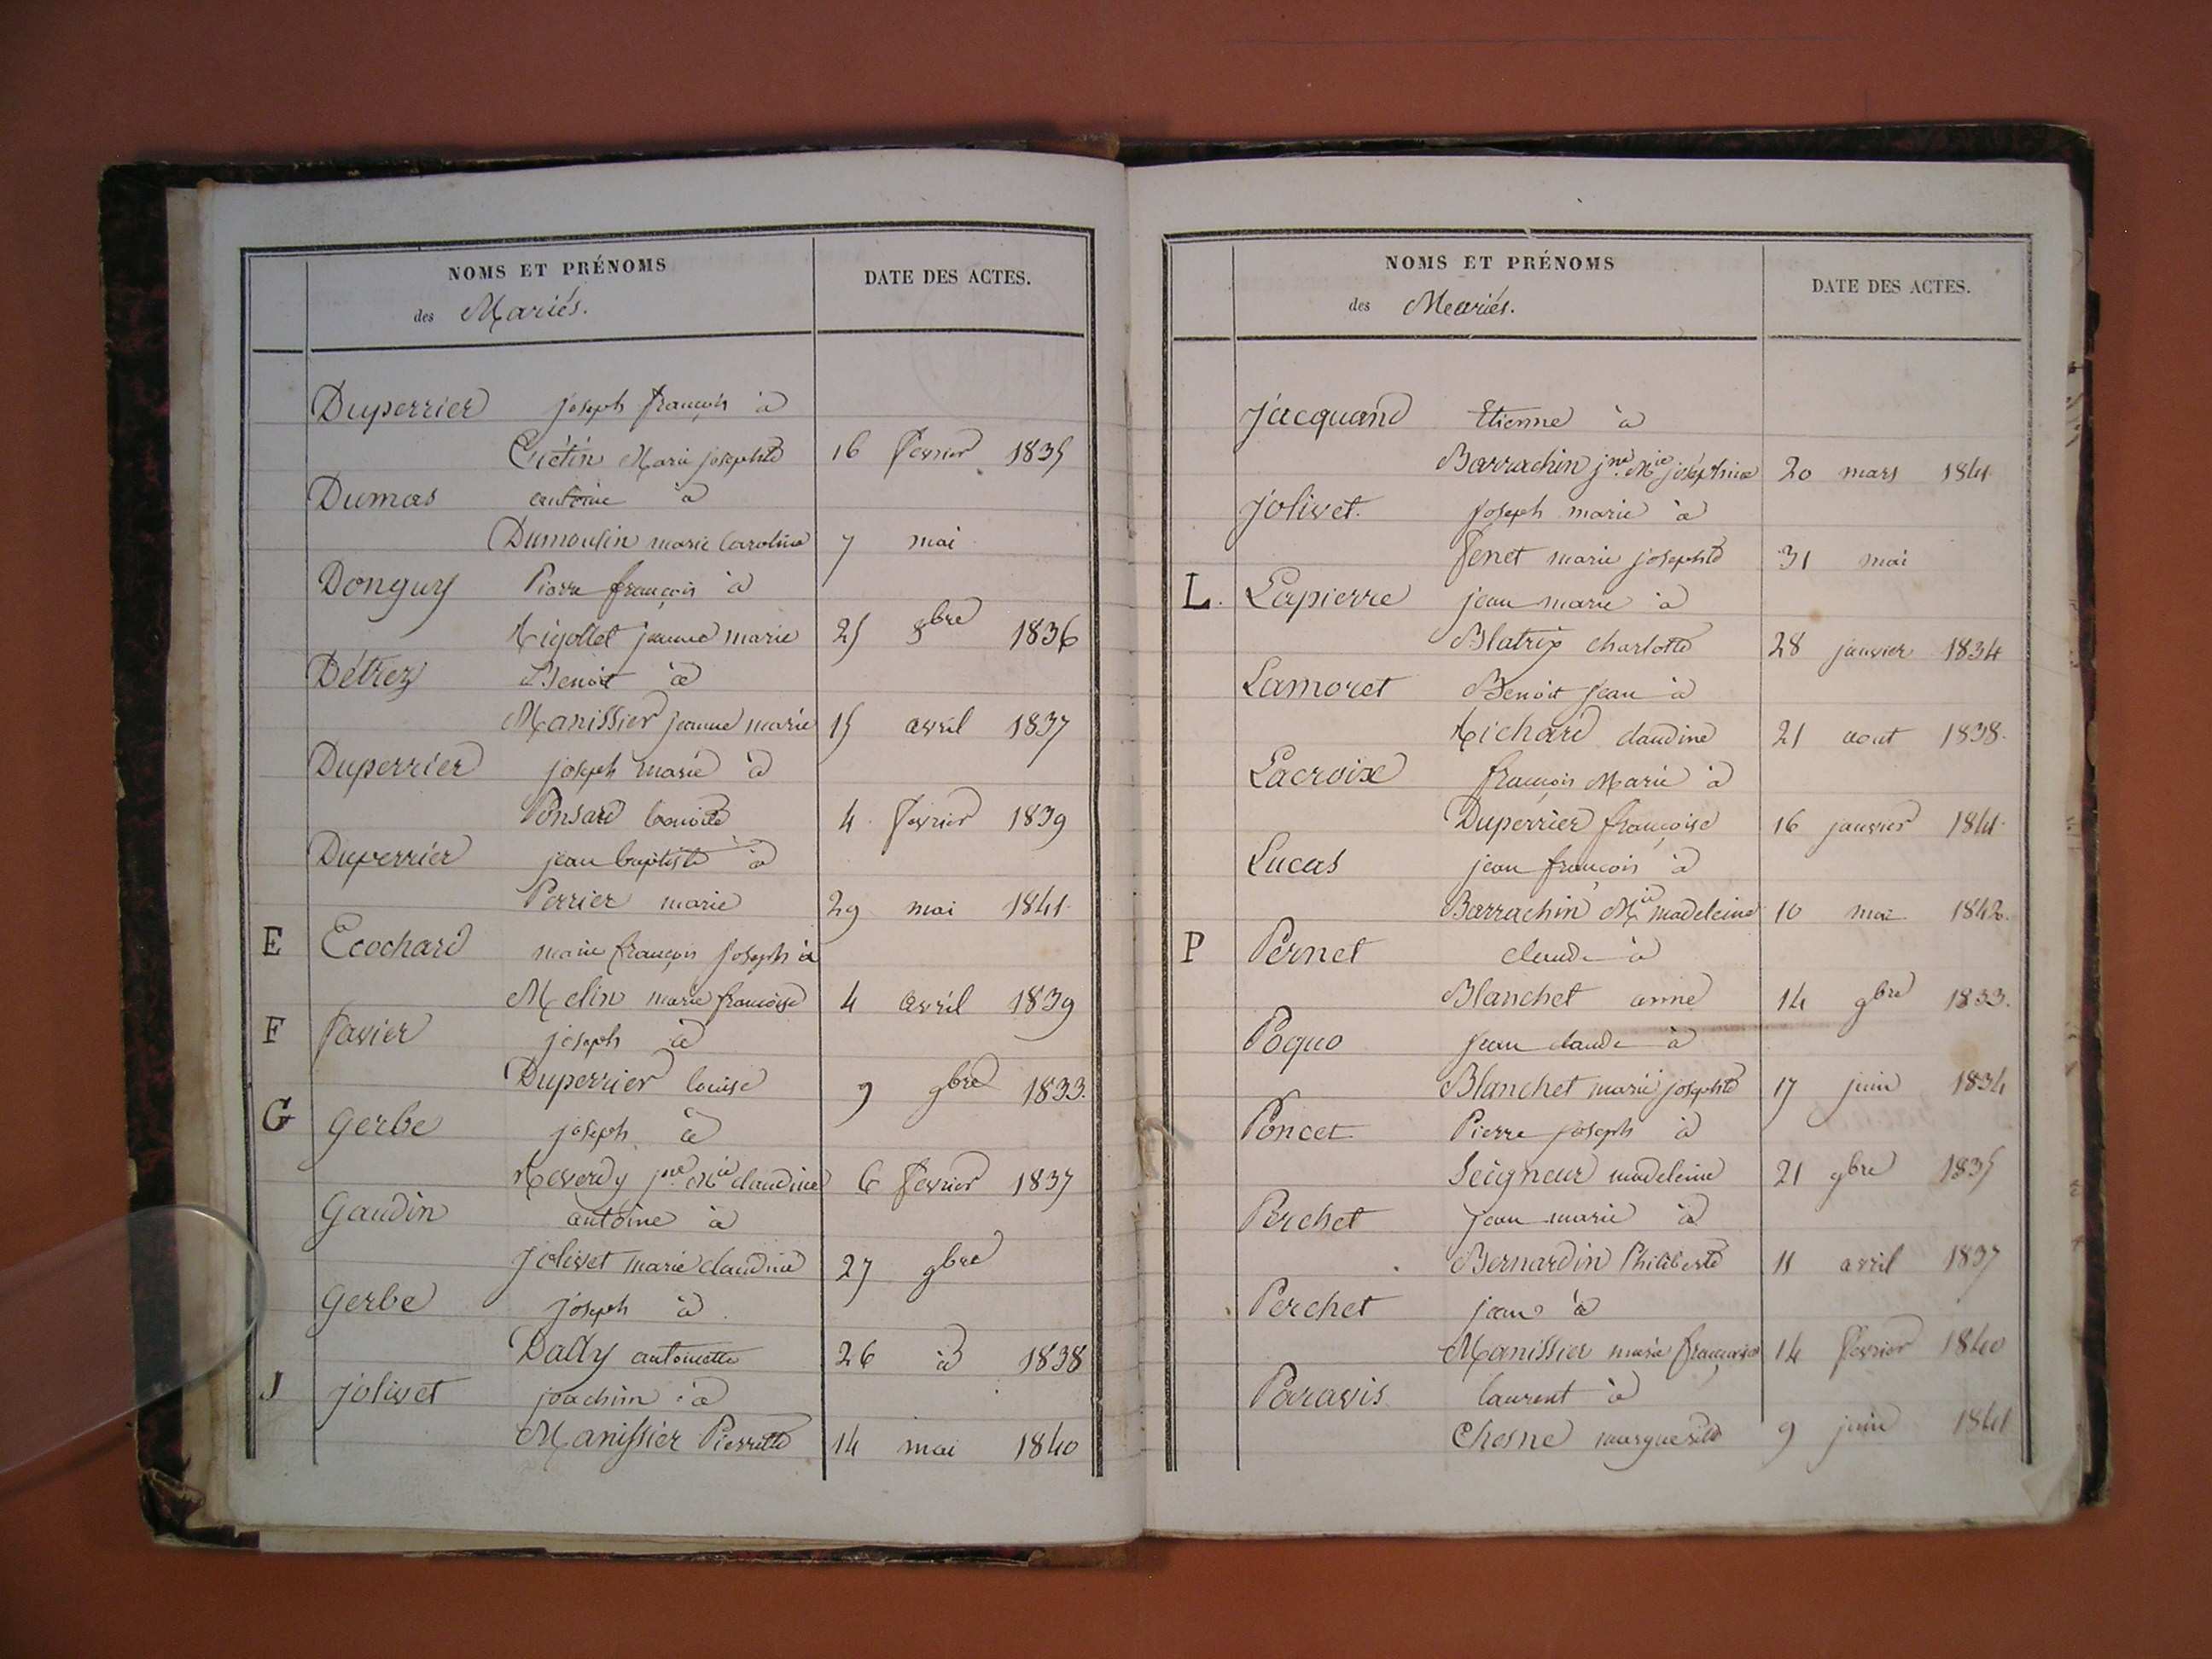 NOMS ET PRÉNOMS
des Mariés.
DATE DES ACTES.
Duperrier joseph françois à
Crétin Marie josephte 16 fevrier 1835
Dumas antoine à
Dumoulin marie Caroline 7 mai
Donguy Pierre françois à
Rigollet jeanne marie 25 8bre 1836
Détrez Benoit à
Manissier jeanne marie 15 avril 1837
Duperrier joseph marie à
Ponsard benoite 4 fevrier 1839
Duperrier jean baptiste à
Perrier marie 29 mai 1841
E Ecochard marie françois joseph à
Melin marie francoise 4 avril 1839
F favier joseph à
Duperrier louise 9 9bre 1833.
G Gerbe joseph à
Reverdy jne Mie claudine 6 fevrier 1837
Gaudin antoine à
Jolivet marie claudine 27 9bre
Gerbe joseph à
Dally antoinette 26 à 1838
J jolivet joachim à
Manissier Pierrette 14 mai 1840
NOMS ET PRÉNOMS
des Mariés.
DATE DES ACTES.
Jacquand Etienne à
Barrachin jne Mie joséphine 20 mars 1841
Jolivet. joseph marie à
fenet marie josephte 31 mai
L. Lapierre jean marie à
Blatrix charlotte 28 janvier 1834
Lamoret Benoit jean à
Richard claudine 21 aout 1838.
Lacroix françois Marie à
Duperrier françoise 16 janvier 1841.
Lucas jean françois à
Barrachin Mie madeleine 10 mai 1842.
P Pernet claude à
Blanchet anne 14 9bre 1833.
Poquo jean claude à
Blanchet marie josephte 17 juin 1834
Poncet Pierre joseph à
Seigneur madeleine 21 9bre 1835
Perchet jean marie à
Bernardin Philiberte 11 avril 1837
Perchet jean à
Manissier marie françoise 14 fevrier 1840
Paravis laurent à
Chesne marguerite 9 juin 1841